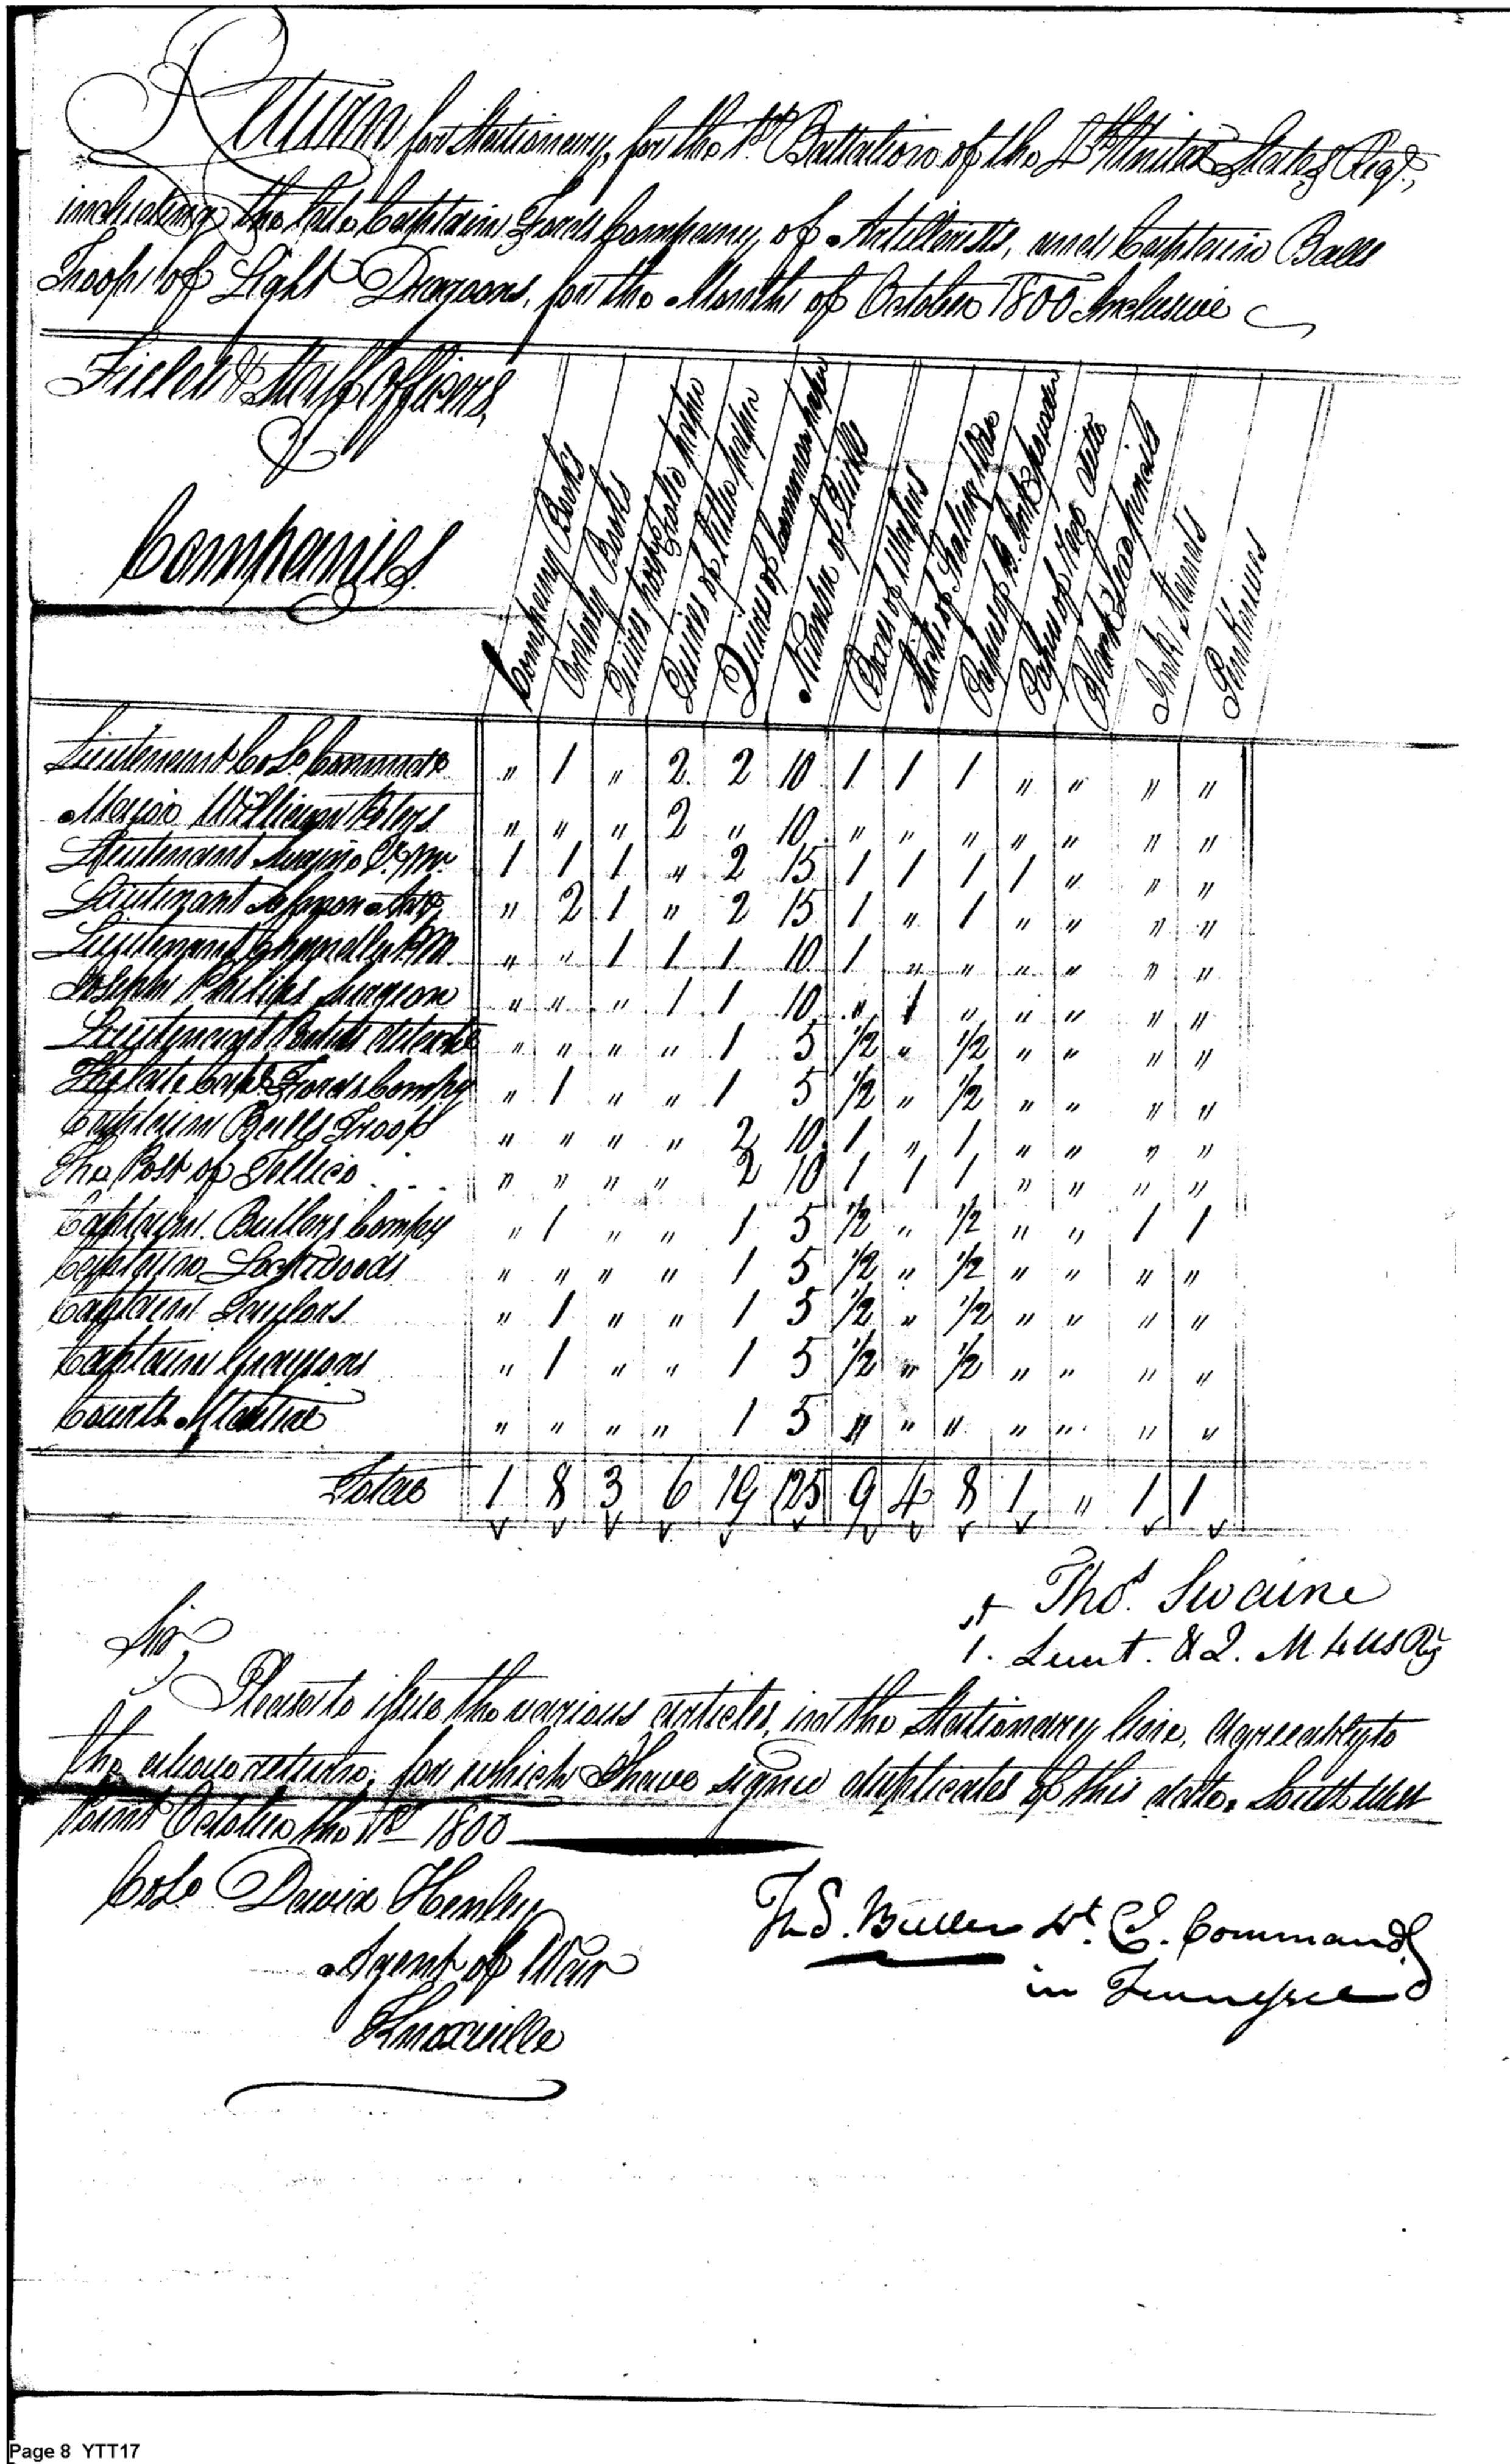 Return for Stationary, for the 1st Battalion of the 4th United States Regt.,
including the late Captain Fords Company, of Artillerists, and Captain Balls
Troop of Light Dragoons, for the Month of October 1800 Inclusive
Field & Staff Officers,
&
Companies
Company Books
Orderly Books
Quires post Folio paper
Quires of ditto paper
Quires of Common paper
Number of Quills
Boxes of Wafers
Sticks of Sealing Wax
Papers of B. Ink powder
Papers of Red ditto
Black lead pencils
Ink Stands
Penknives
Lieutenant Col. Command. " 1 " 2 2 10 1 1 1 " " " "
Major William Peters " " " 2 " 10 " " " " " " "
Lieutenant Swaine Q. M. 1 1 1 " 2 15 1 1 1 1 " " "
Lieutenant " 2 1 " 2 15 1 " 1 " " " "
Lieutenant P.M. " " 1 1 1 10 1 " " " " " "
Joseph Philips Surgeon " " " 1 1 10 " 1 " " " " "
Lieutenant " " " " 1 5 1/2 " 1/2 " " " "
The late Capt. Fords Compy " 1 " " 1 5 1/2 " 1/2 " " " "
Captain Balls Troop " " " " 2 10 1 " 1 " " " "
The Post of Tellico " " " " 2 10 1 1 1 " " " "
Captain Butlers Compy " 1 " " 1 5 1/2 " 1/2 " " 1 1
Captain Lockwoods " " " " 1 5 1/2 " 1/2 " " " "
Captain Taylors " 1 " " 1 5 1/2 " 1/2 " " " "
Captain Graysons " 1 " " 1 5 1/2 " 1/2 " " " "
Courts Martial " " " " 1 5 " " " " " " "
Total 1 8 3 6 19 125 9 4 8 1 " 1 1
Thos. Swaine
1st Lieut. & Q. M 4 US Rg
Sir,
Please to issue the various articles, in the Stationary line, agreeably to
the above return, for which I have signed duplicates of this date. South West
Point October the 1st 1800
Colo. David Henley
Agent of War
Knoxville
Thos. Butler Lt. Col. Command.
in Tennessee
Page 8 YTT17